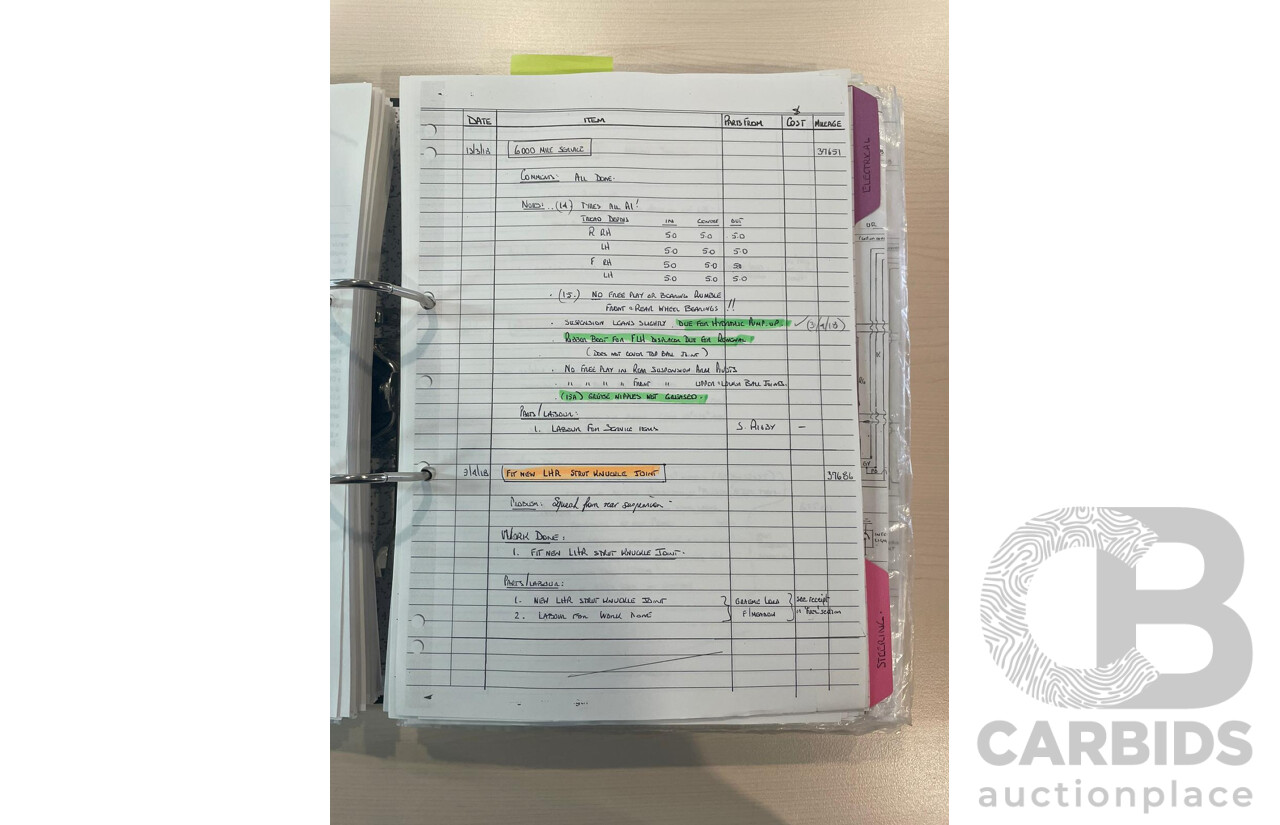 DATE ITEM PARTS FROM COST MILEAGE
13/3/18 6000 MILE SERVICE 37651
COMMENTS: ALL DONE.
NOTES: (14) TYRES ALL A1!
TREAD DEPTHS IN CENTRE OUT
R RH 5.0 5.0 5.0
LH 5.0 5.0 5.0
F RH 5.0 5.0 5.0
LH 5.0 5.0 5.0
. (15.) NO FREE PLAY OR BEARING RUMBLE
FRONT + REAR WHEEL BEARINGS !!
. SUSPENSION LEANS SLIGHTLY. DUE FOR HYDRAULIC PUMP UP. ✓ (3/4/18)
. RUBBER BOOT FOR FLH DISPLACER DUE FOR RENEWAL
(DOES NOT COVER TOP BALL JOINT)
. NO FREE PLAY IN REAR SUSPENSION ARM PIVOTS
. " " " " FRONT " UPPER + LOWER BALL JOINTS.
. (13A) GREASE NIPPLES NOT GREASED.
PARTS/LABOUR:
1. LABOUR FOR SERVICE ITEMS S. RIGBY –
3/4/18 FIT NEW LHR STRUT KNUCKLE JOINT 37686
PROBLEM: Squeak from rear suspension
WORK DONE:
1. FIT NEW LHR STRUT KNUCKLE JOINT.
PARTS/LABOUR:
1. NEW LHR STRUT KNUCKLE JOINT GRAEME see receipt
2. LABOUR FOR WORK DONE section
ELECTRICAL
STEERING.
CB
CARBIDS
auctionplace